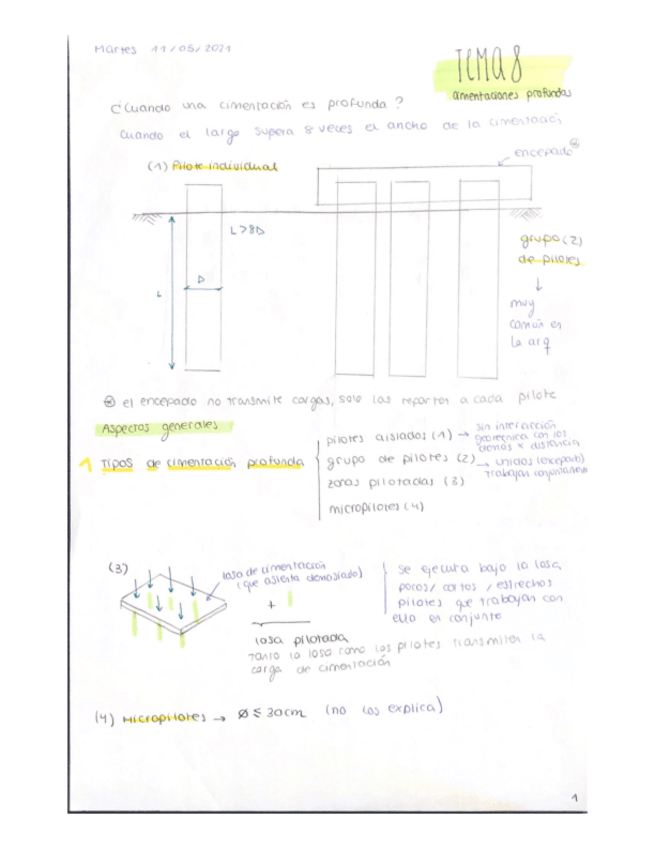 Martes 11/05/2021
TEMA 8
cimentaciones profundas
¿Cuando una cimentación es profunda?
cuando el largo supera 8 veces el ancho de la cimentación
encepado
(1) Pilote individual
L>8D
D
L
grupo (2)
de pilotes
muy
común en
la arq
el encepado no transmite cargas, solo las reparten a cada pilote
Aspectos generales
1 Tipos de cimentación profunda
pilotes aislados (1) → sin interacción
geotécnica con los
demás x distancia
grupo de pilotes (2) → unidos (encepado)
trabajan conjuntamente
zonas pilotadas (3)
micropilotes (4)
(3)
losa de cimentación
(que asienta demasiado)
+
losa pilotada
se ejecuta bajo la losa
pocos/ cortos / estrechos
pilotes que trabajan con
ella en conjunto
Tanto la losa como los pilotes transmiten la
carga de cimentación
(4) Micropilotes → Ø ≤ 30cm (no los explica)
1